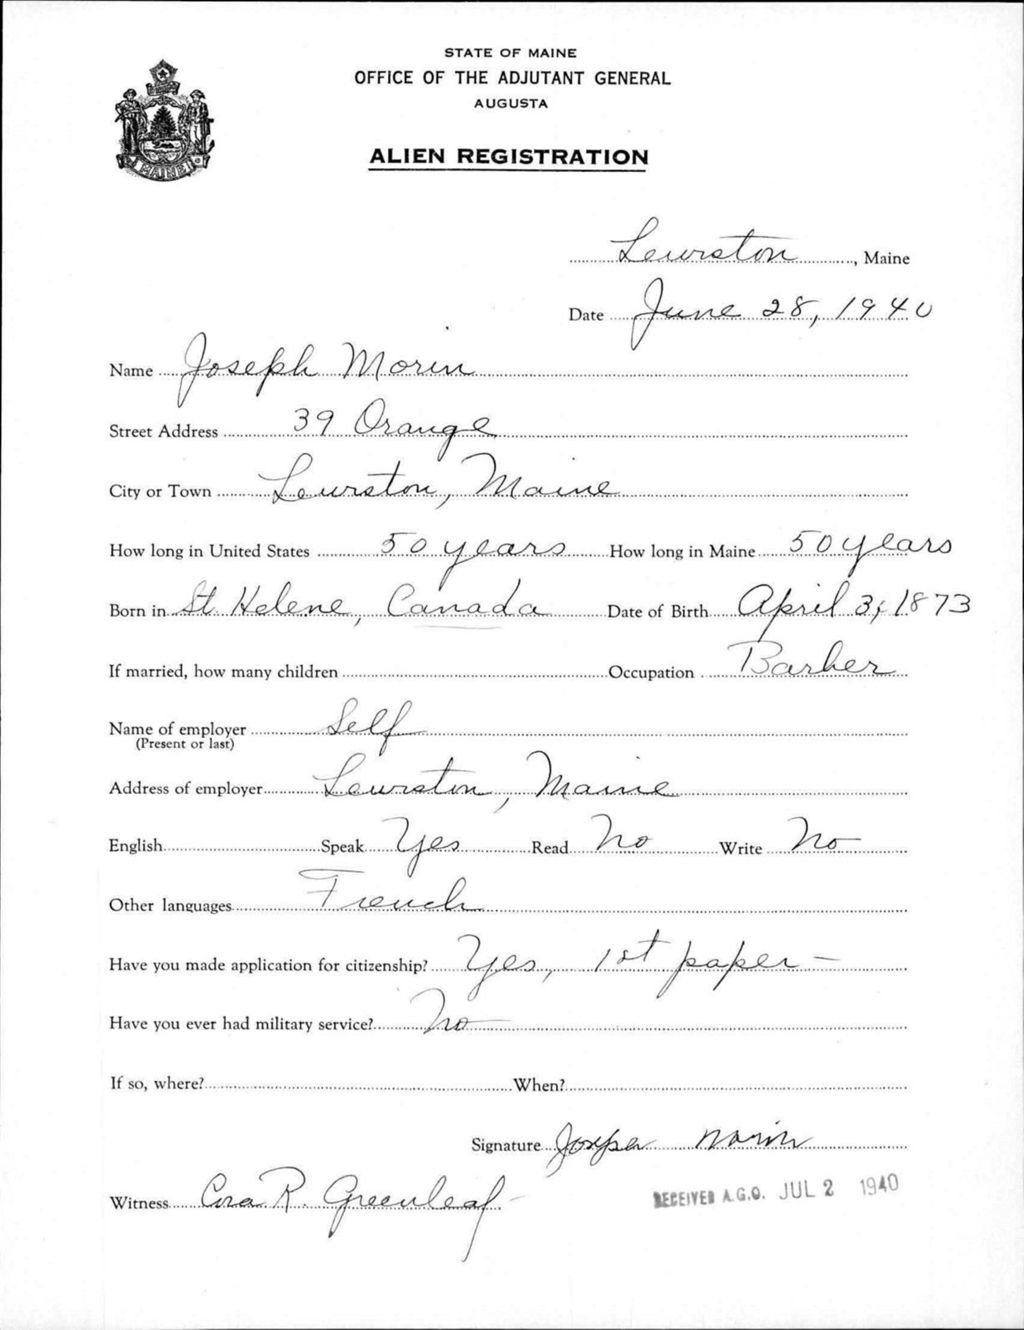 STATE OF MAINE
OFFICE OF THE ADJUTANT GENERAL
AUGUSTA
ALIEN REGISTRATION
MAINE
Lewiston, Maine
Date June 28, 1940
Name Joseph Morin
Street Address 39 Orange
City or Town Lewiston, Maine
How long in United States 50 years How long in Maine 50 years
Born in St. Helene, Canada Date of Birth April 3, 1873
If married, how many children Occupation Barber
Name of employer Self
(Present or last)
Address of employer Lewiston, Maine
English Speak Yes Read No Write No
Other languages French
Have you made application for citizenship? Yes, 1st paper –
Have you ever had military service? No
If so, where? When?
Signature Morin
Witness Cora R. Greenleaf
RECEIVED A.G.O. JUL 2 1940